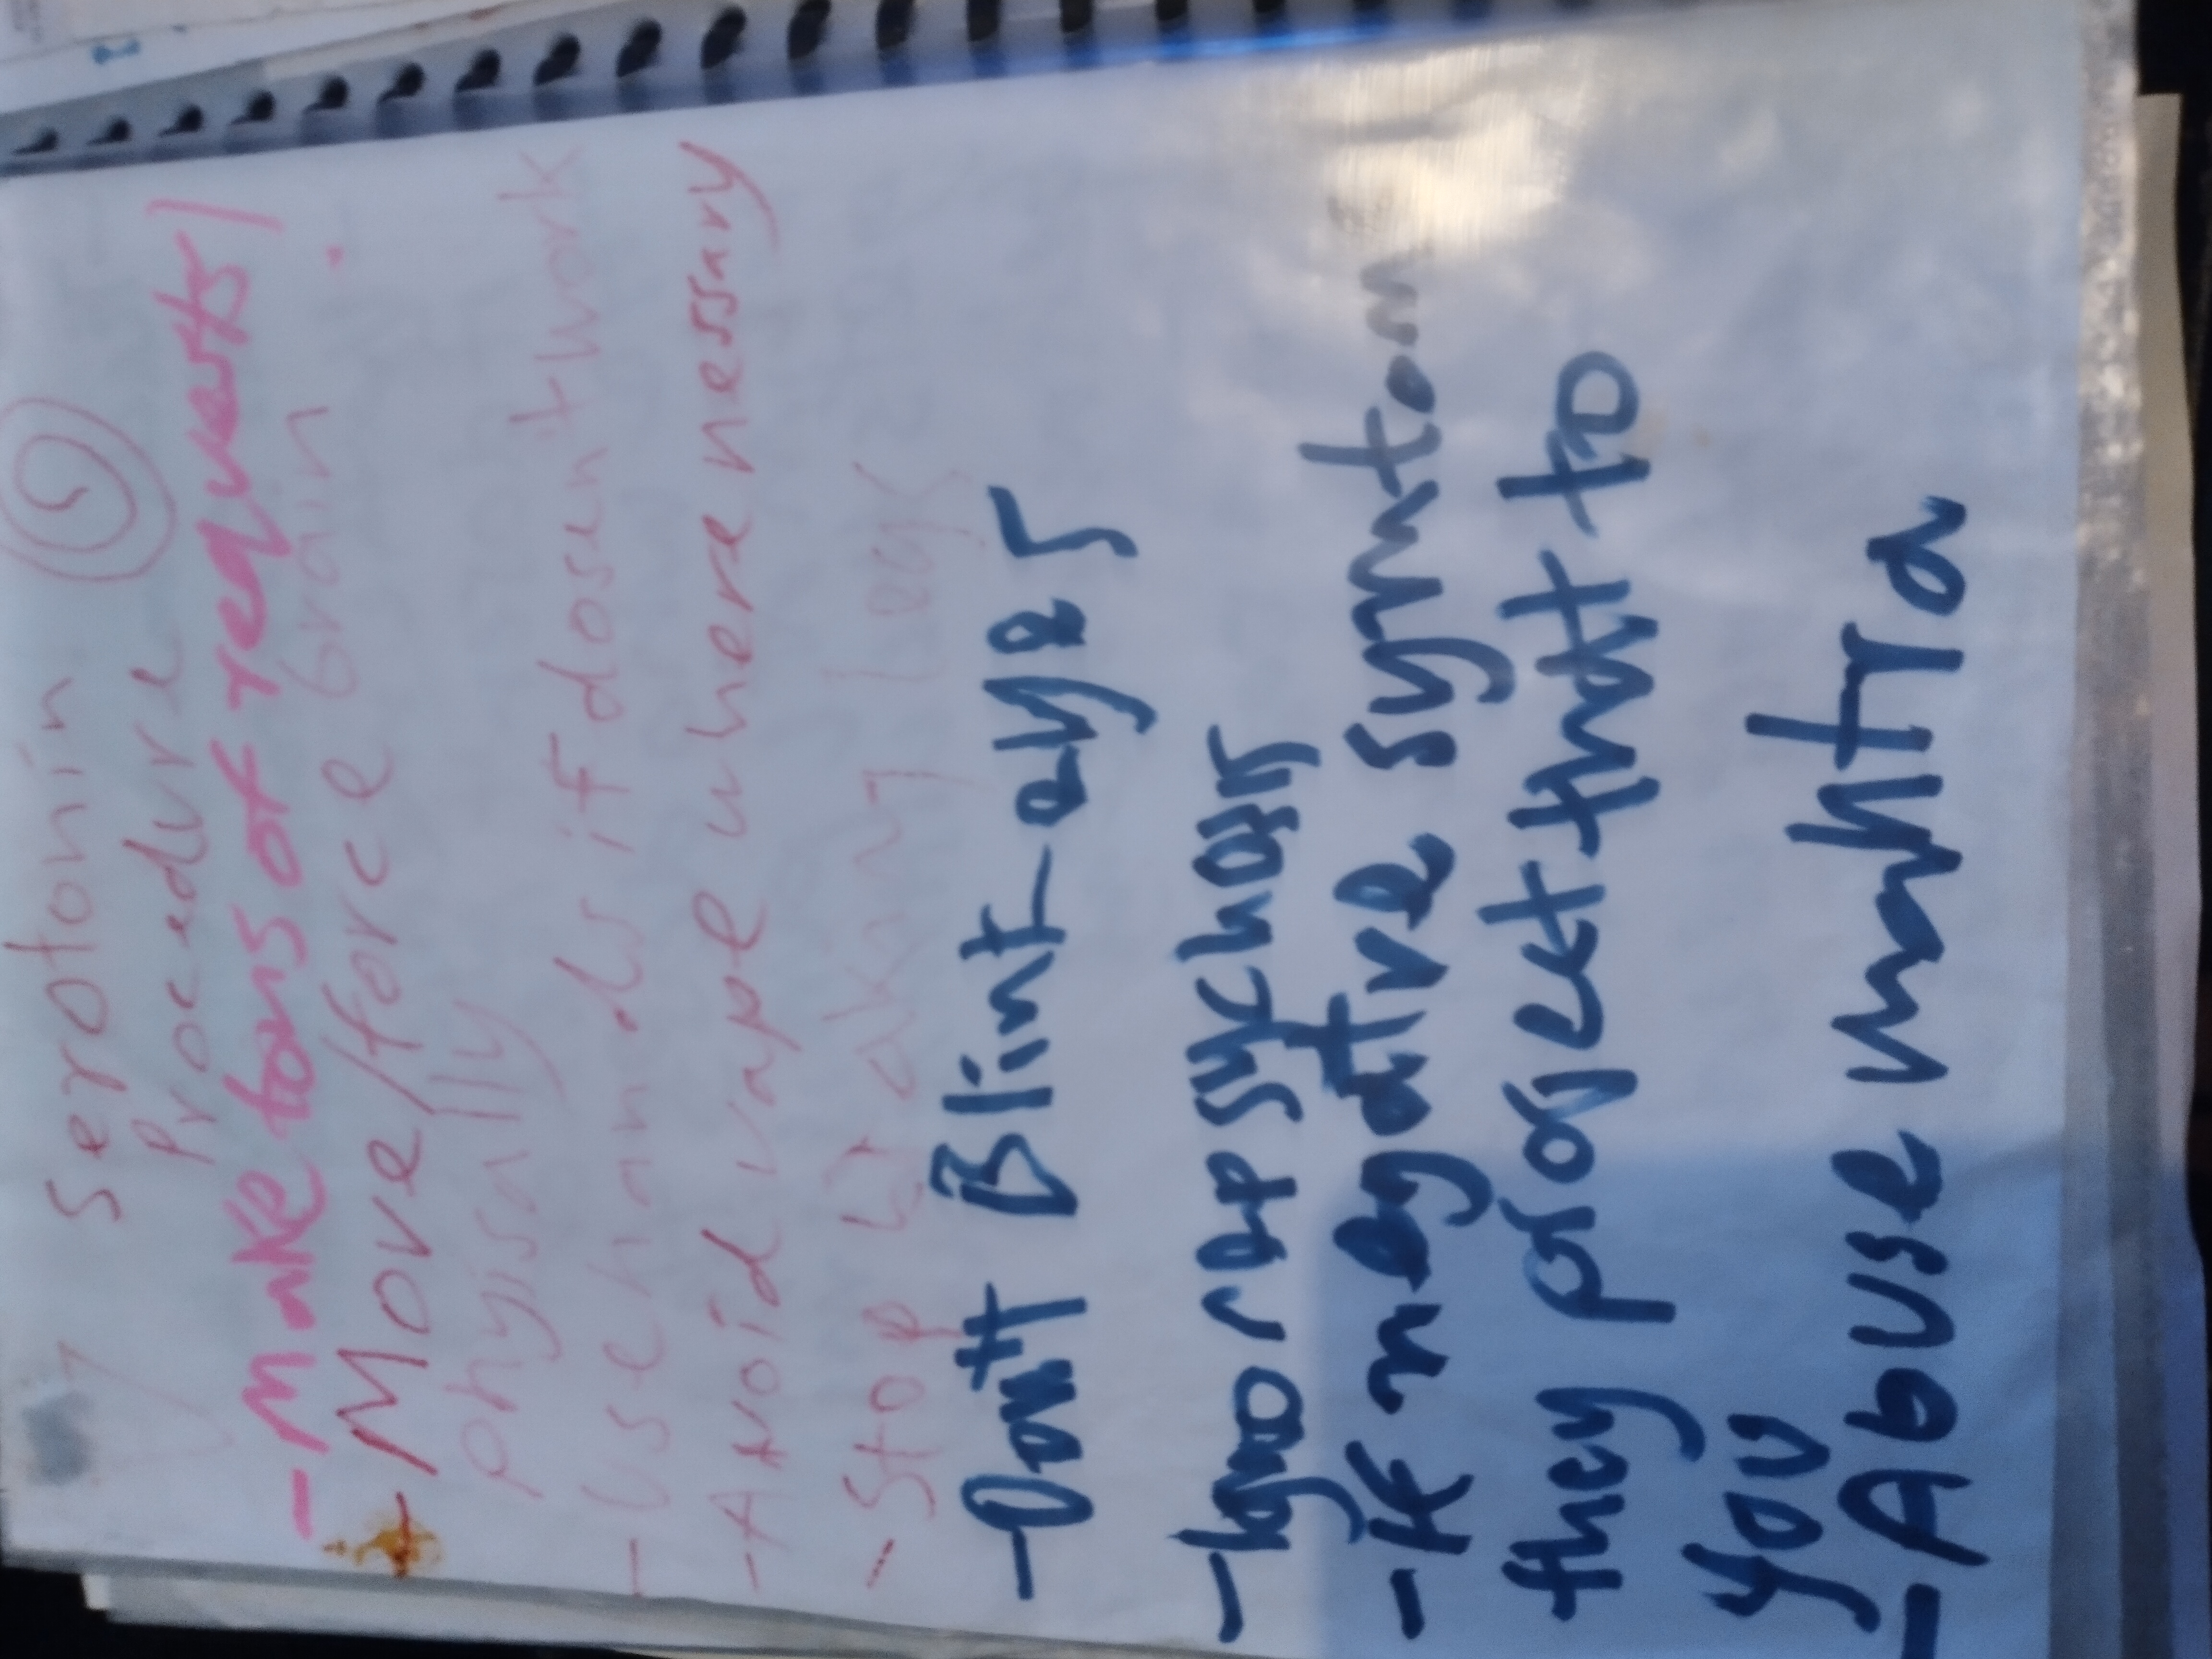 Serotonin
procedure
- Make tons of requests!
- Move/force brain
phyisally
- Use hands if dosent work
- Avoid vape where nessary
- Stop legs
- Dont Blint-
- Ignore psychosis
- If negative symtom
they that to
you
- Abuse